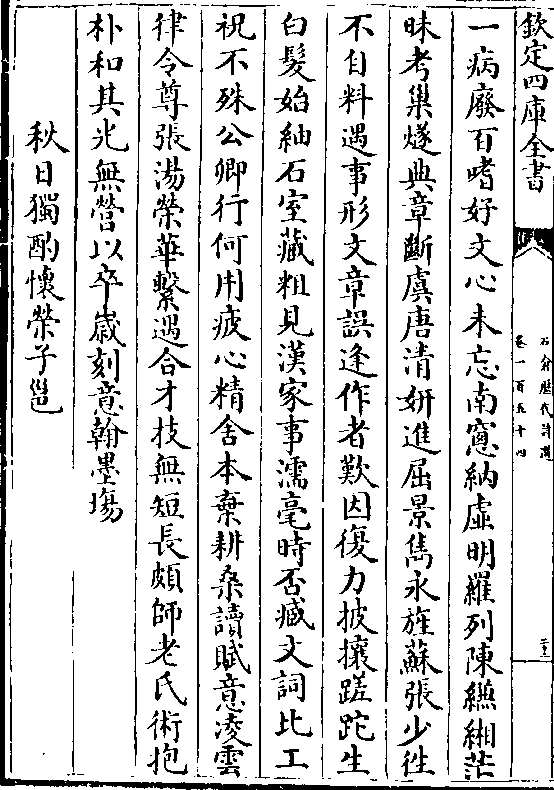 欽定四庫全書
石倉歷代詩選
卷一百五十四
一病廢百嗜好文心未忘南窻納虛明羅列陳縹緗茫
昧考巢燧典章斷虞唐清妍進屈景雋永旌蘇張少徃
不自料遇事形文章誤逢作者歎因復力披攘蹉跎生
白髮始紬石室藏粗見漢家事濡毫時否臧文詞比工
祝不殊公卿行何用疲心精舍本棄耕桑讀賦意凌雲
律令尊張湯榮華繫遇合才技無短長頗師老氏術抱
朴和其光無營以卒歲刻意翰墨塲
秋日獨酌懷榮子邕